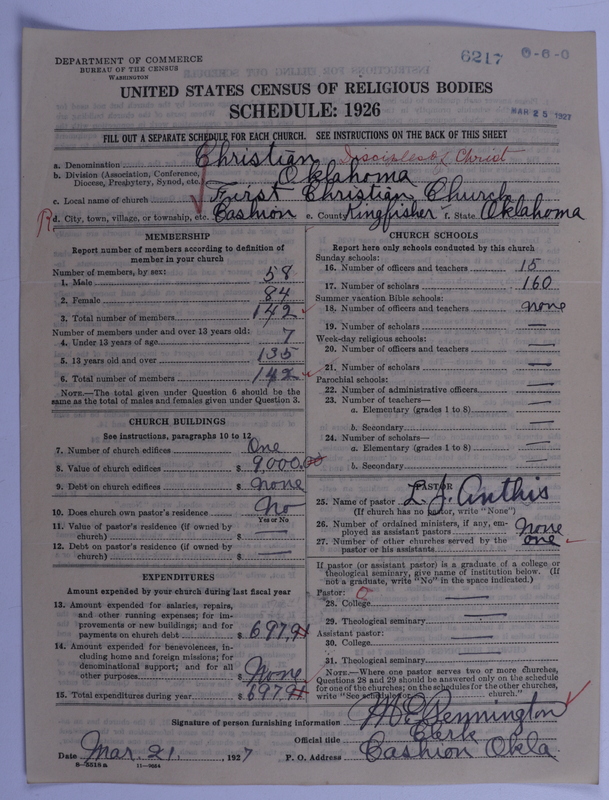 DEPARTMENT OF COMMERCE
BUREAU OF THE CENSUS
WASHINGTON
6217 0-6-0
UNITED STATES CENSUS OF RELIGIOUS BODIES
SCHEDULE: 1926
MAR 25 1927
FILL OUT A SEPARATE SCHEDULE FOR EACH CHURCH. SEE INSTRUCTIONS ON THE BACK OF THIS SHEET
a. Denomination Christian Disciples of Christ
b. Division (Association, Conference, Diocese, Presbytery, Synod, etc.) Oklahoma
c. Local name of church First Christian Church
R d. City, town, village, or township, etc. Cashion e. County Kingfisher f. State Oklahoma
MEMBERSHIP
Report number of members according to definition of
member in your church
Number of members, by sex:
1. Male 58
2. Female 84
3. Total number of members 142
Number of members under and over 13 years old:
4. Under 13 years of age 7
5. 13 years old and over 135
6. Total number of members 142
NOTE.—The total given under Question 6 should be
same as the total of males and females given under Question 3.
CHURCH BUILDINGS
See instructions, paragraphs 10 to 12
7. Number of church edifices One
8. Value of church edifices $ 9,000.00
9. Debt on church edifices $ None
10. Does church own pastor's residence? No
Yes or No
11. Value of pastor's residence (if owned by
church) $ —
12. Debt on pastor's residence (if owned by
church) $ —
EXPENDITURES
Amount expended by your church during last fiscal year
13. Amount expended for salaries, repairs,
and other running expenses; for im-
provements or new buildings; and for
payments on church debt $ 697.
14. Amount expended for benevolences, in-
cluding home and foreign missions; for
denominational support; and for all
other purposes $ None
15. Total expenditures during year $ 697.
CHURCH SCHOOLS
Report here only schools conducted by this church
Sunday schools:
16. Number of officers and teachers 15
17. Number of scholars 160
Summer vacation Bible schools:
18. Number of officers and teachers none
19. Number of scholars —
Week-day religious schools:
20. Number of officers and teachers —
21. Number of scholars —
Parochial schools:
22. Number of administrative officers —
23. Number of teachers—
a. Elementary (grades 1 to 8) —
b. Secondary —
24. Number of scholars—
a. Elementary (grades 1 to 8) —
b. Secondary —
PASTOR
25. Name of pastor L. J. Anthis
(If church has no pastor, write "None")
26. Number of ordained ministers, if any, em-
ployed as assistant pastors None
27. Number of other churches served by the
pastor or his assistants one
If pastor (or assistant pastor) is a graduate of a college or
theological seminary, give name of institution below. (If
not a graduate, write "No" in the space indicated.)
Pastor:
28. College —
29. Theological seminary —
Assistant pastor:
30. College —
31. Theological seminary —
NOTE.—Where one pastor serves two or more churches,
Questions 28 and 29 should be answered only on the schedule
for one of the churches; on the schedules for the other churches,
write "See schedule for church."
Signature of person furnishing information M E Pennington
Official title Clerk
Date Mar. 21. 1927 P. O. Address Cashion Okla
8-5518a 11-9024